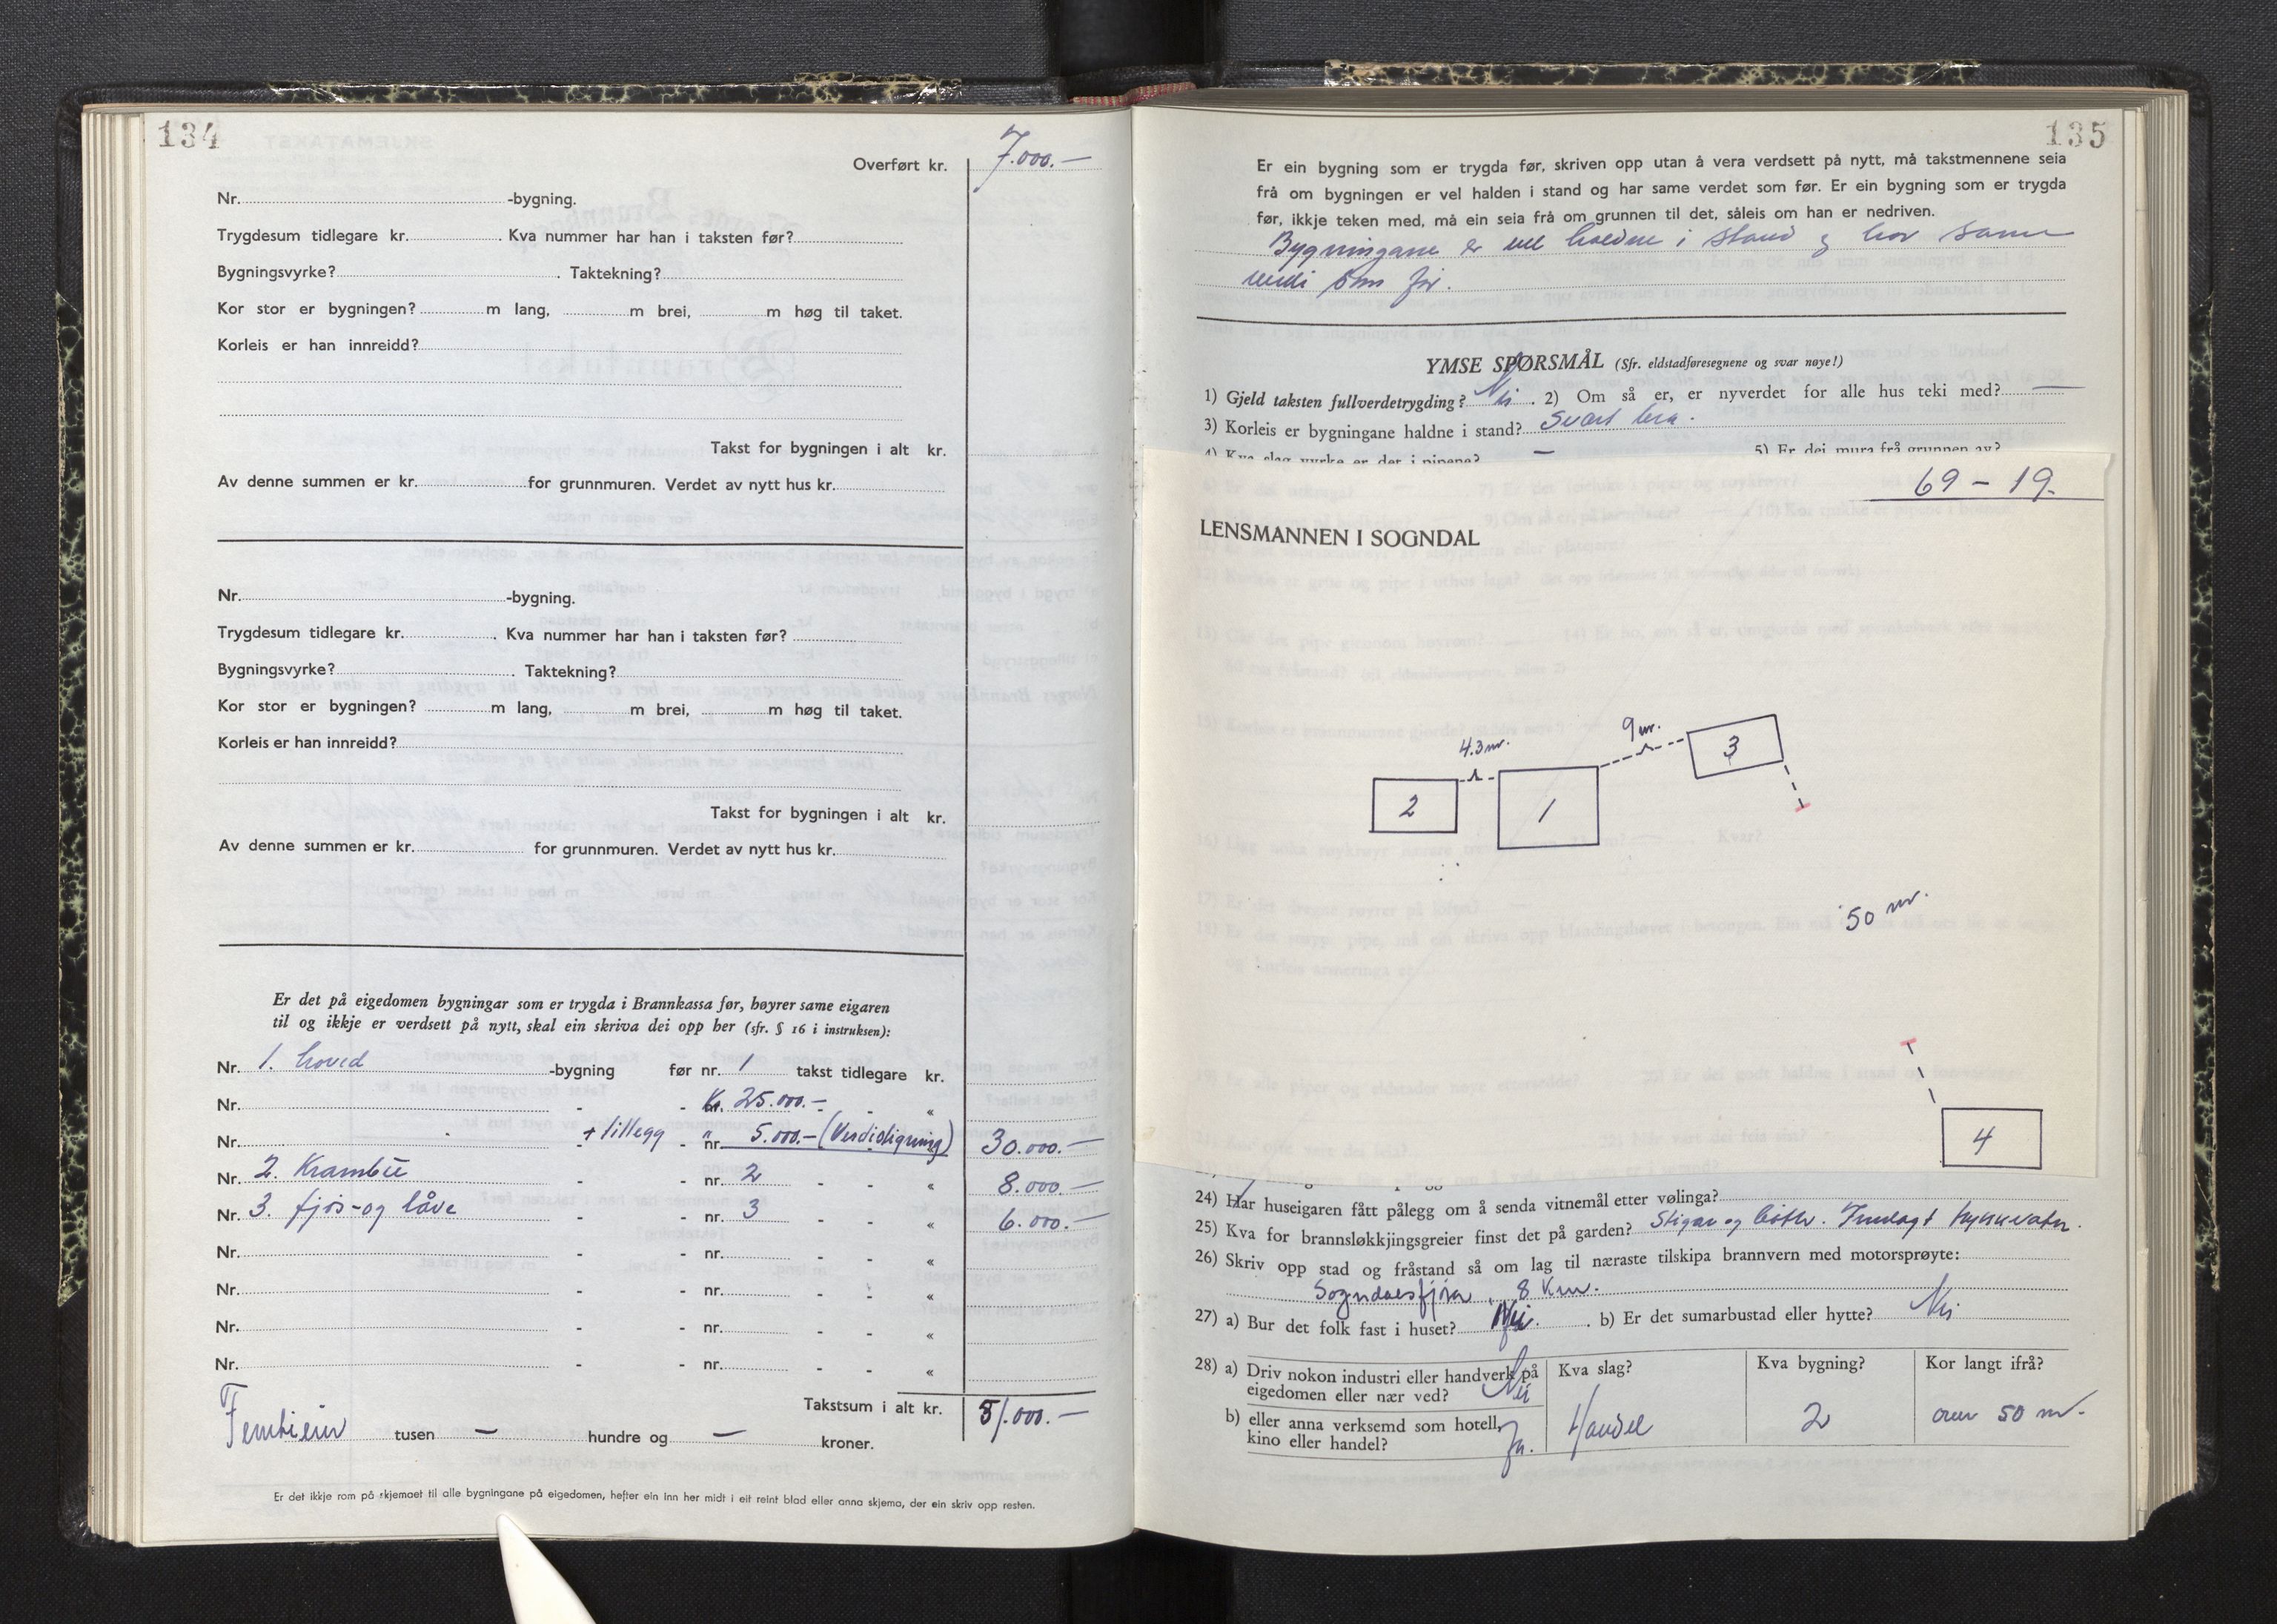 134
Overført kr. 7.000.—
Nr. -bygning.
Trygdesum tidlegare kr. . Kva nummer har han i taksten før?
Bygningsvyrke? . Taktekning?
Kor stor er bygningen? m lang, m brei, m høg til taket.
Korleis er han innreidd?
Takst for bygningen i alt kr.
Av denne summen er kr. for grunnmuren. Verdet av nytt hus kr.
Nr. -bygning.
Trygdesum tidlegare kr. . Kva nummer har han i taksten før?
Bygningsvyrke? . Taktekning?
Kor stor er bygningen? m lang, m brei, m høg til taket.
Korleis er han innreidd?
Takst for bygningen i alt kr.
Av denne summen er kr. for grunnmuren. Verdet av nytt hus kr.
Er det på eigedomen bygningar som er trygda i Brannkassa før, høyrer same eigaren
til og ikkje er verdsett på nytt, skal ein skriva dei opp her (sfr. § 16 i instruksen):
Nr. 1. hoved -bygning før nr. 1 takst tidlegare kr.
Nr. - - Kr. 25.000.— - «
Nr. + tillegg - " nr. 5.000.— (Verdistigning) 30.000.—
Nr. 2. Krambu - - nr. 2 - - « 8.000.—
Nr. 3. fjøs- og låve - - nr. 3 - - « 6.000.—
Nr. - - nr. - - «
Nr. - - nr. - - «
Nr. - - nr. - - «
Nr. - - nr. - - «
Takstsum i alt kr. 51.000.—
Femtiein tusen — hundre og — kroner.
Er det ikkje rom på skjemaet til alle bygningane på eigedomen, hefter ein inn her midt i eit reint blad eller anna skjema, der ein skriv opp resten.
135
Er ein bygning som er trygda før, skriven opp utan å vera verdsett på nytt, må takstmennene seia
frå om bygningen er vel halden i stand og har same verdet som før. Er ein bygning som er trygda
før, ikkje teken med, må ein seia frå om grunnen til det, såleis om han er nedriven.
Bygningane er vel holdne i stand og har same
verdi som før.
YMSE SPØRSMÅL (Sfr. eldstadføresegnene og svar nøye!)
1) Gjeld taksten fullverdetrygding? Nei . 2) Om så er, er nyverdet for alle hus teki med? —
3) Korleis er bygningane haldne i stand? Svært bra.
4) Kva slag vyrke er det i pipene? — 5) Er dei mura frå grunnen av?
69 - 19.
LENSMANNEN I SOGNDAL
4.3 m. 9 m.
2 1 3
50 m.
4
24) Har huseigaren fått pålegg om å senda vitnemål etter vølinga?
25) Kva for brannsløkkjingsgreier finst det på garden? Stigar og bøtter. Innlagt trykkvatn.
26) Skriv opp stad og fråstand så om lag til næraste tilskipa brannvern med motorsprøyte:
Sogndalsfjøra, 8 Km.
27) a) Bur det folk fast i huset? . b) Er det sumarbustad eller hytte? Nei
28) a) Driv nokon industri eller handverk på Kva slag? Kva bygning? Kor langt ifrå?
eigedomen eller nær ved? Nei
b) eller anna verksemd som hotell, Handel 2 over 50 m.
kino eller handel? Ja.